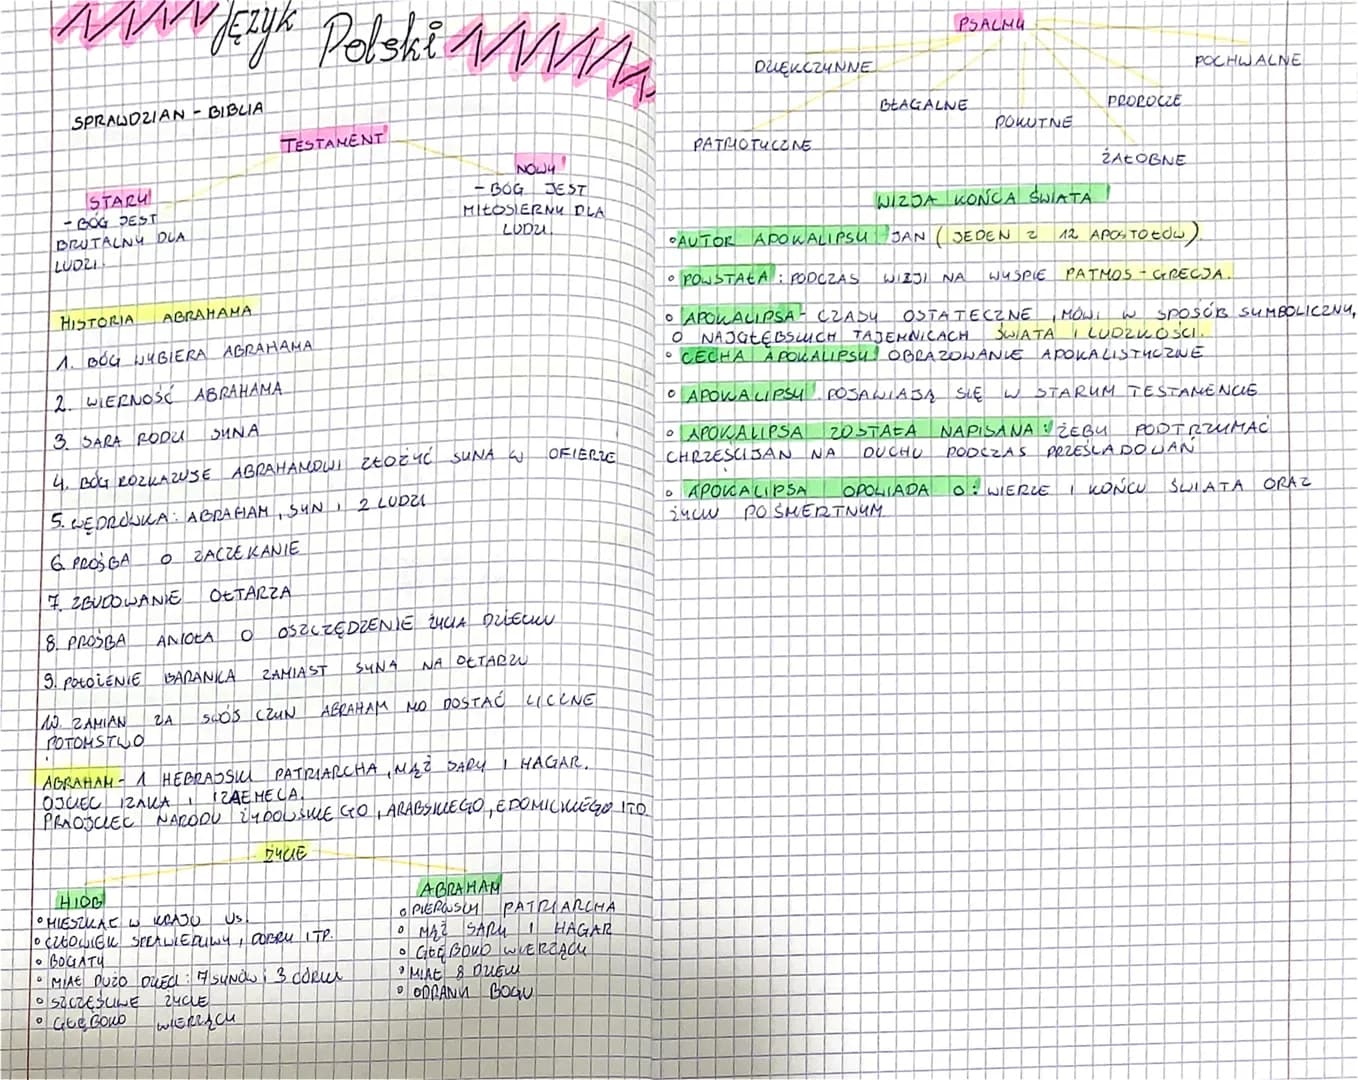 Język Polski
SPRAWDZIAN - BIBLIA
TESTAMENT
STARY
- BÓG JEST
BRUTALNY DLA
LUDZI.
NOWY
- BÓG JEST
MIŁOSIERNY DLA
LUDZI.
HISTORIA ABRAHAMA
1. BÓG WYBIERA ABRAHAMA
2. WIERNOŚĆ ABRAHAMA
3. SARA RODZI SYNA
4. BÓG ROZKAZUJE ABRAHAMOWI ZŁOŻYĆ SYNA W OFIERZE
5. WĘDRÓWKA: ABRAHAM, SYN I 2 LUDZI
6. PROŚBA O ZACZEKANIE
7. ZBUDOWANIE OŁTARZA
8. PROŚBA ANIOŁA O OSZCZĘDZENIE ŻYCIA DZIECKU
9. POŁOŻENIE BARANKA ZAMIAST SYNA NA OŁTARZU
10. ZAMIAN ZA SWÓJ CZYN ABRAHAM MO DOSTAĆ LICZNE
POTOMSTWO
ABRAHAM - 1 HEBRAJSKI PATRIARCHA, MĄŻ SARY I HAGAR.
OJCIEC IZAKA I IZAEMECA.
PRAOJCIEC NARODU ŻYDOWSKIEGO, ARABSKIEGO, EDOMICKIEGO ITD.
ŻYCIE
HIOB
• MIESZKAŁ W KRAJU US.
• CZŁOWIEK SPRAWIEDLIWY, DOBRY ITP.
• BOGATY
• MIAŁ DUŻO DZIECI: 7 SYNÓW I 3 CÓRKI
• SZCZĘŚLIWE ŻYCIE
• GŁĘBOKO WIERZĄCY
ABRAHAM
• PIERWSZY PATRIARCHA
• MĄŻ SARY I HAGAR
• GŁĘBOKO WIERZĄCY
• MIAŁ 8 DZIECI
• ODDANY BOGU
PSALMY
DZIĘKCZYNNE
POCHWALNE
BŁAGALNE
PROROCZE
POKUTNE
PATRIOTYCZNE
ŻAŁOBNE
WIZJA KOŃCA ŚWIATA
• AUTOR APOKALIPSY JAN (JEDEN Z 12 APOSTOŁÓW)
• POWSTAŁA: PODCZAS WIZJI NA WYSPIE PATMOS - GRECJA.
• APOKALIPSA - CZASY OSTATECZNE, MÓWI W SPOSÓB SYMBOLICZNY,
O NAJGŁĘBSZYCH TAJEMNICACH ŚWIATA I LUDZKOŚCI.
• CECHA APOKALIPSY OBRAZOWANIE APOKALISTYCZNE
• APOKALIPSY POJAWIAJĄ SIĘ W STARYM TESTAMENCIE
• APOKALIPSA ZOSTAŁA NAPISANA: ŻEBY PODTRZYMAĆ
CHRZEŚCIJAN NA DUCHU PODCZAS PRZEŚLADOWAŃ
• APOKALIPSA OPOWIADA O: WIERZE I KOŃCU ŚWIATA ORAZ
ŻYCIU POŚMIERTNYM